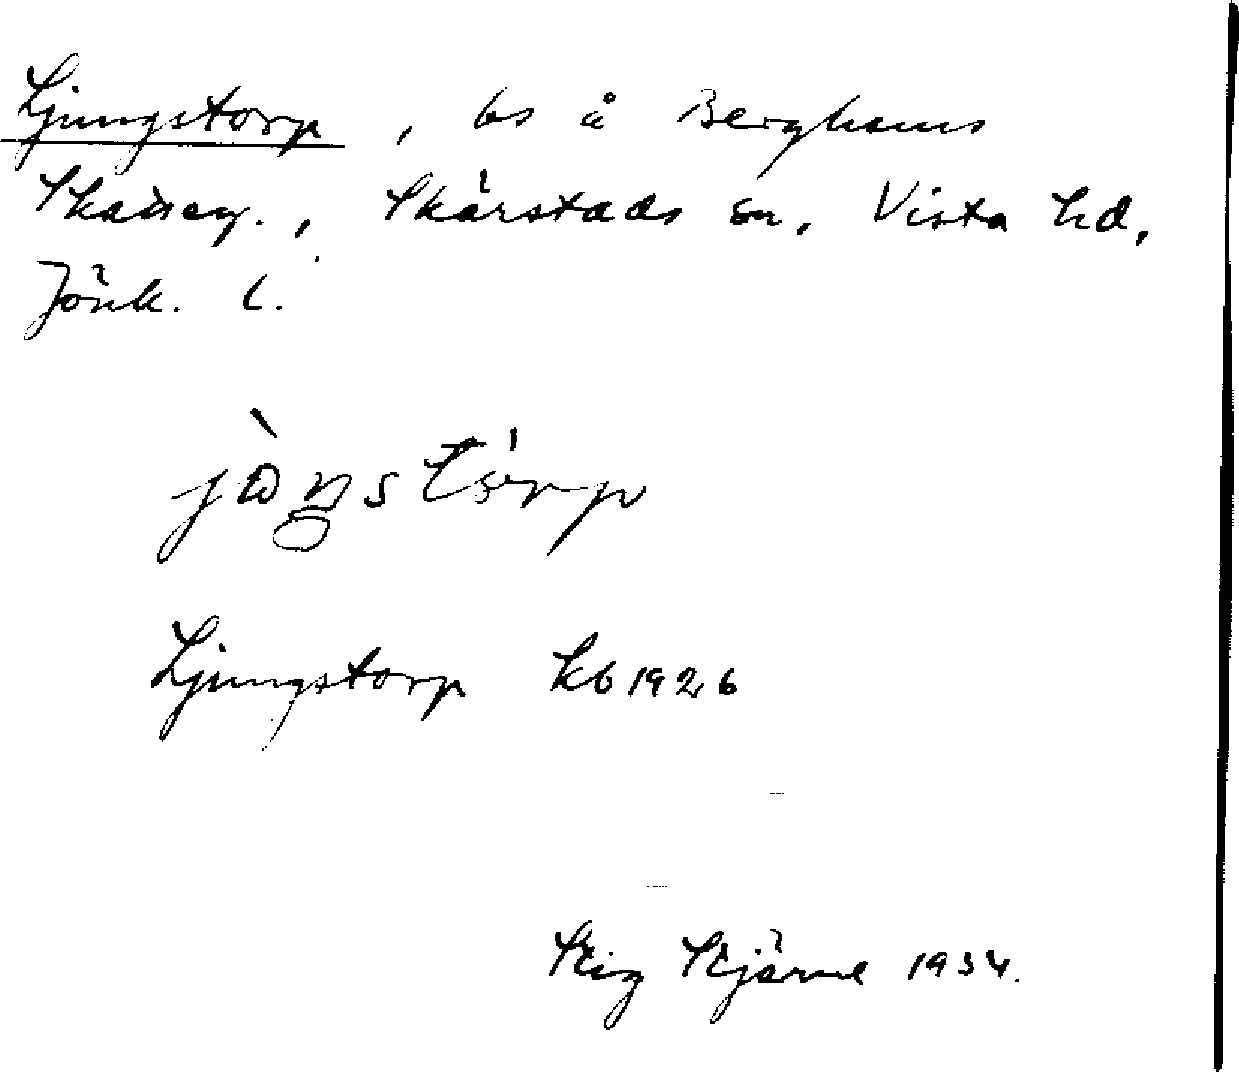 Ljungstorp, bs å Berghems
Skatteg., Skärstads sn, Vista hd,
Jönk. l.
Ljungstorp kb 1926
Stig Stjärne 1934.